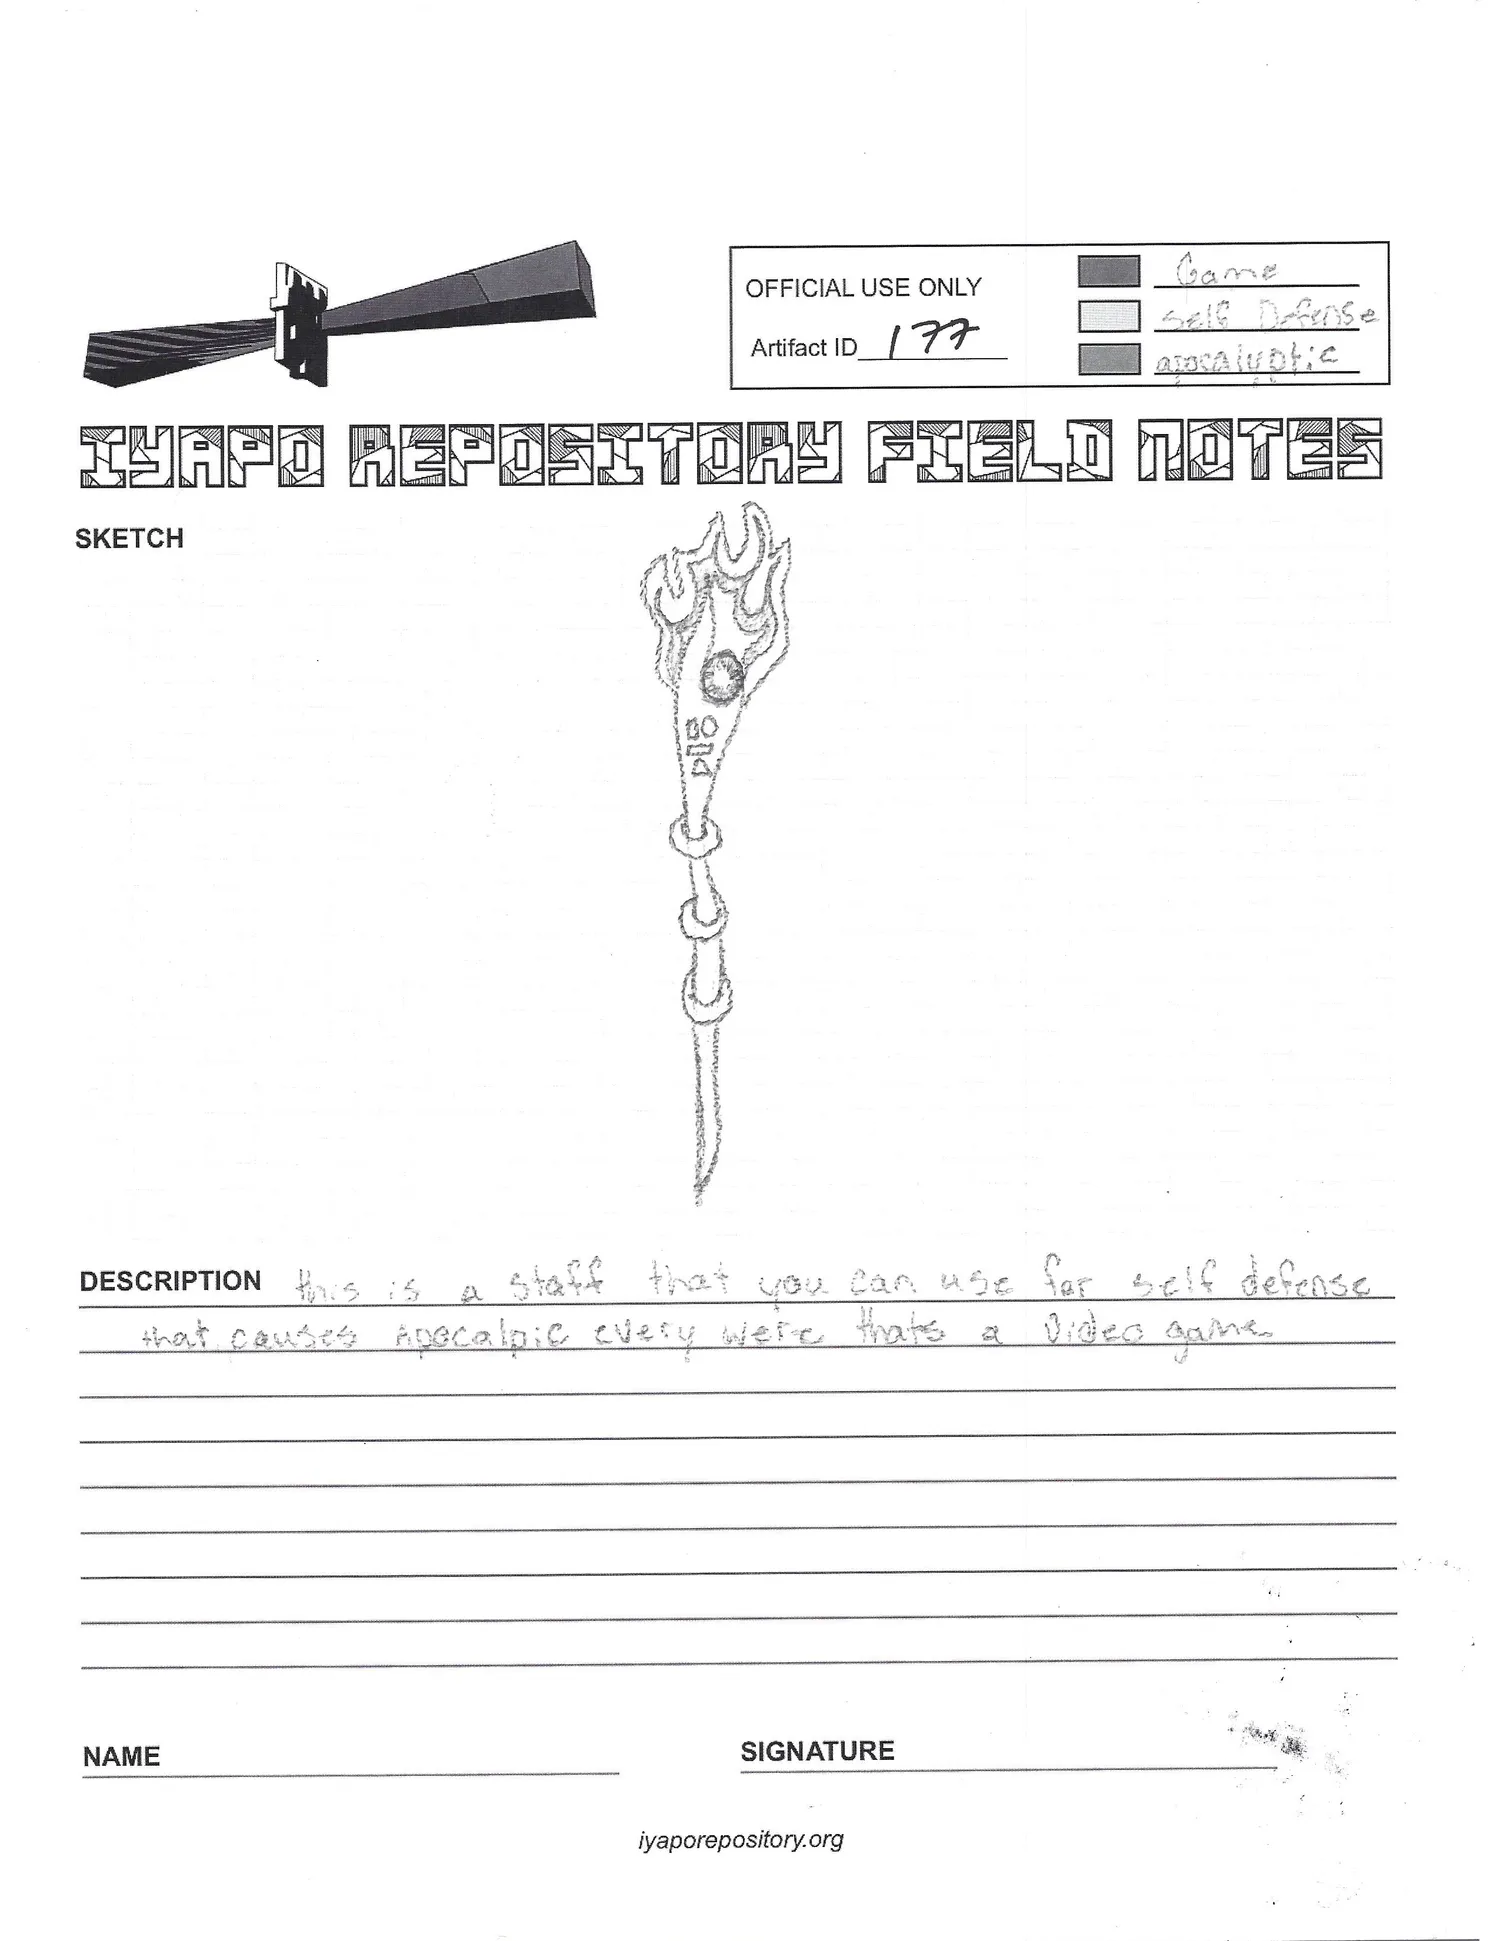 OFFICIAL USE ONLY
Artifact ID 177
Game
Self Defense
apocalyptic
IYAPO REPOSITORY FIELD NOTES
SKETCH
DESCRIPTION this is a staff that you can use for self defense
that causes Apocalpic every were thats a video game
NAME
SIGNATURE
iyaporepository.org